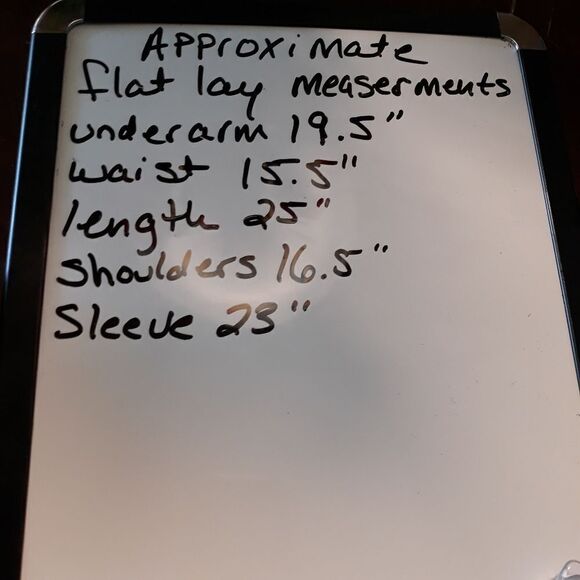 Approximate
flat lay measerments
underarm 19.5"
waist 15.5"
length 25"
Shoulders 16.5"
Sleeve 23"